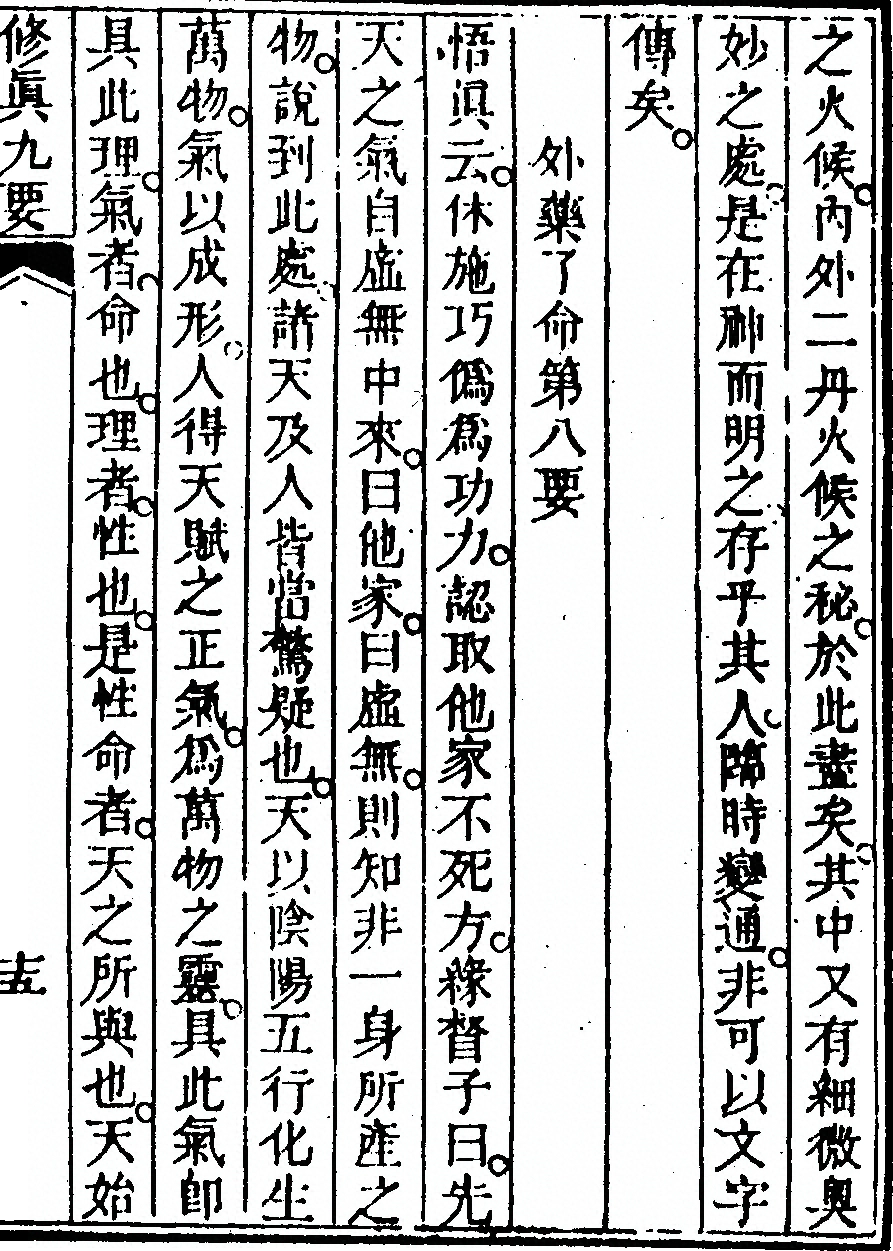 之火候。內外二丹火候之秘。於此盡矣。其中又有細微奧
妙之處。是在神而明之。存乎其人。臨時變通。非可以文字
傳矣。
外藥了命第八要
悟眞云。休施巧僞爲功力。認取他家不死方。緣督子曰。先
天之氣自虛無中來。曰他家。曰虛無。則知非一身所產之
物。說到此處。諸天及人皆當驚疑也。天以陰陽五行化生
萬物。氣以成形。人得天賦之正氣。爲萬物之靈。具此氣卽
具此理。氣者。命也。理者。性也。是性命者。天之所與也。天始
修眞九要
十五